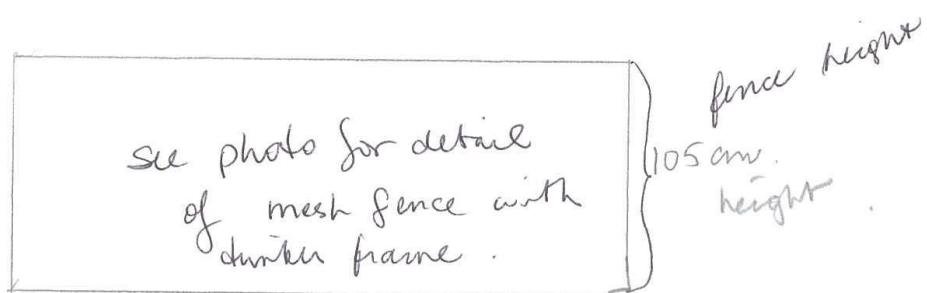 see photo for detail
of mesh fence with
timber frame.
fence height
105 cm.
height